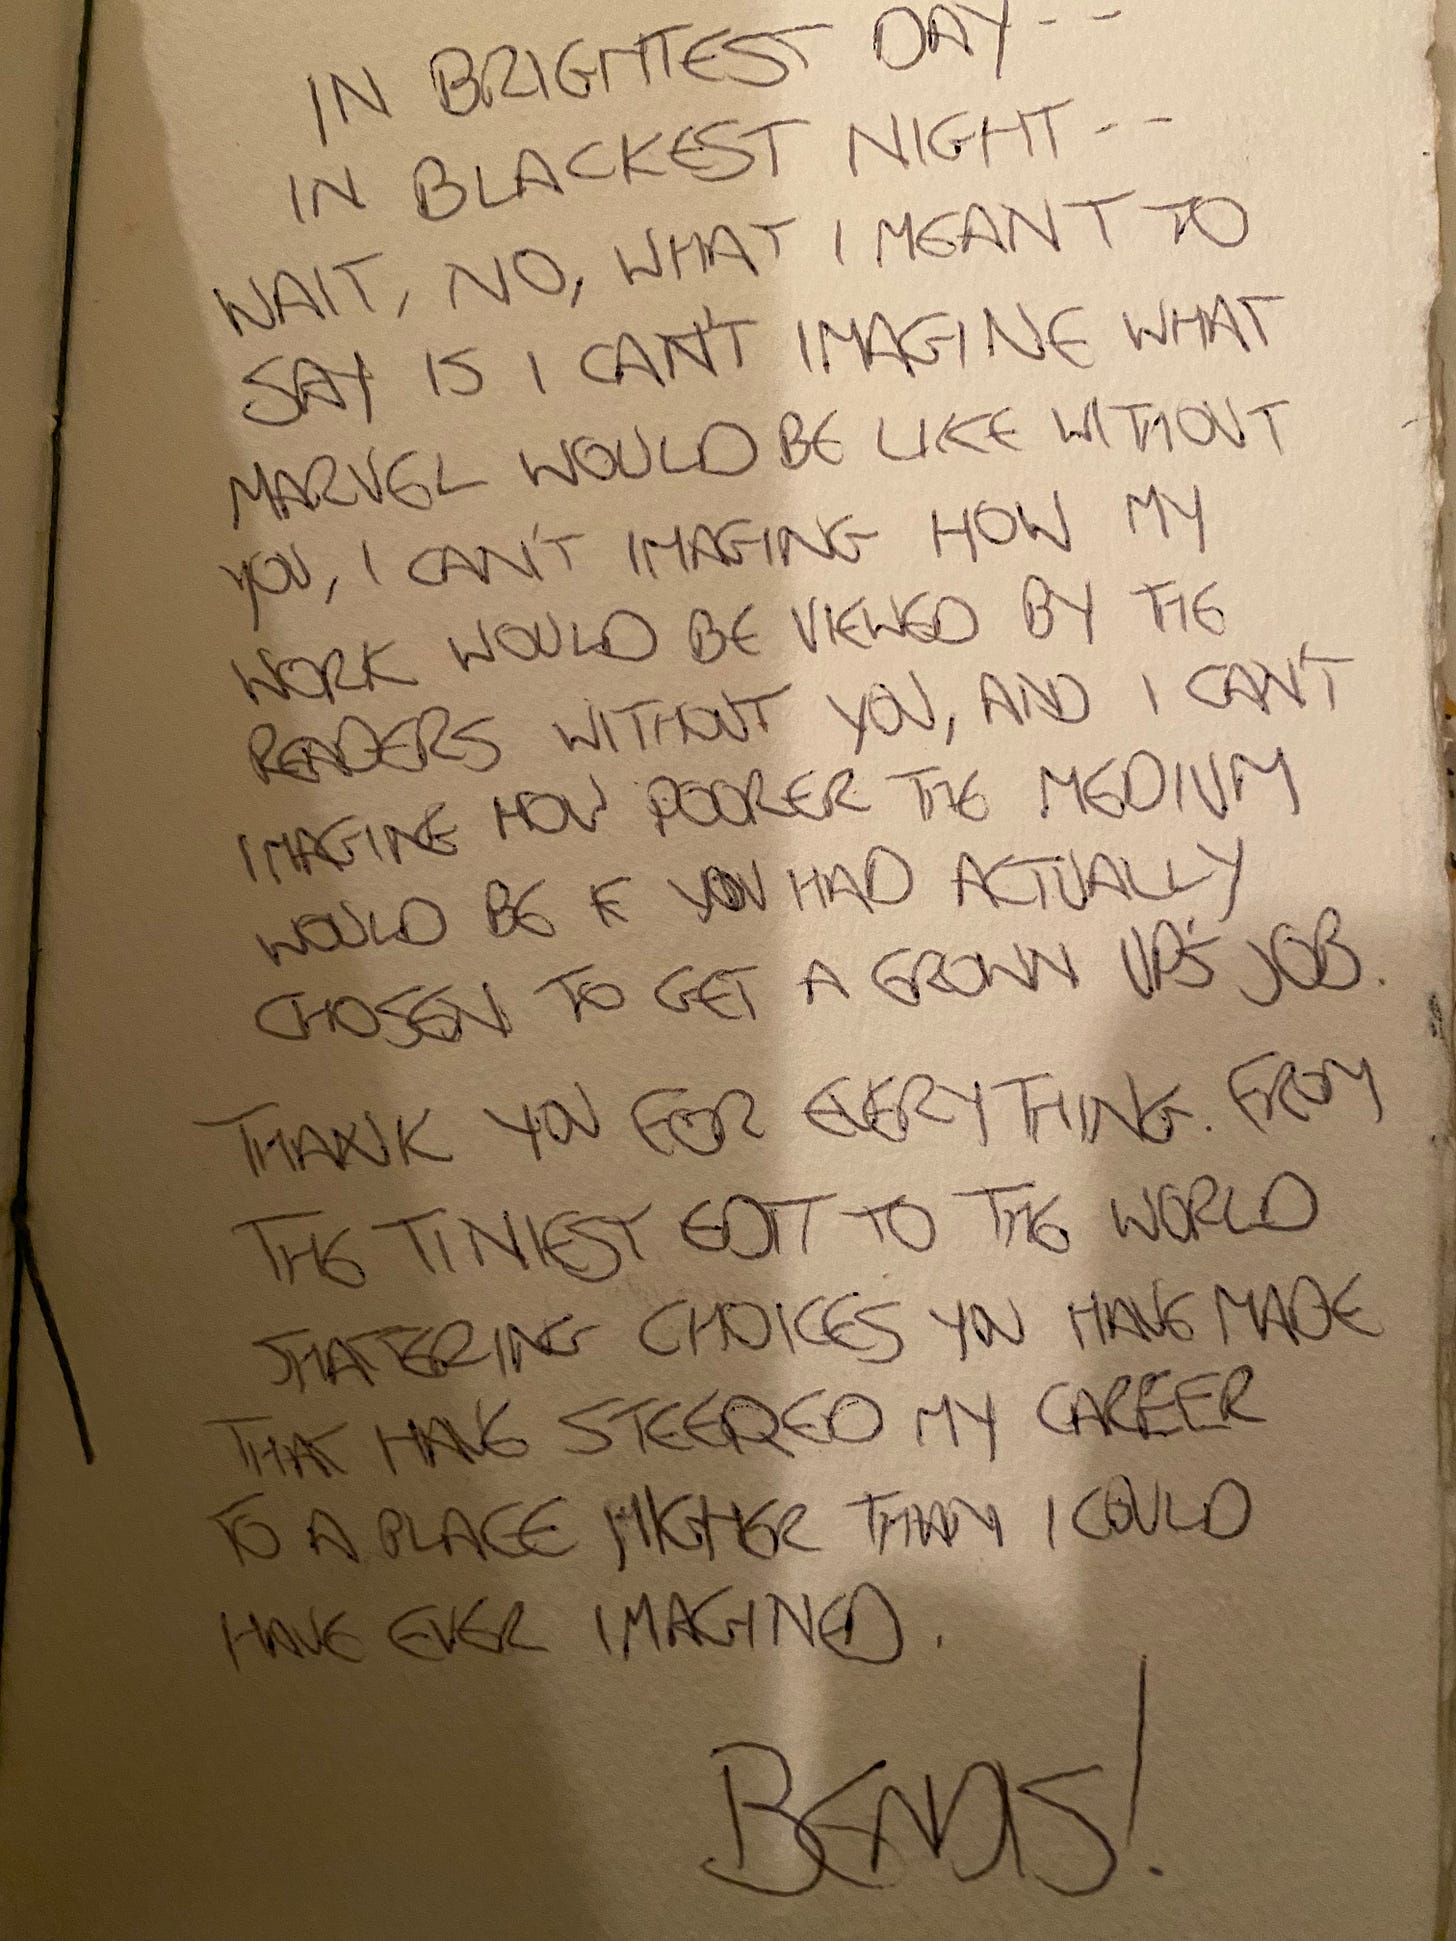 IN BRIGHTEST DAY--
IN BLACKEST NIGHT--
WAIT, NO, WHAT I MEANT TO
SAY IS I CAN'T IMAGINE WHAT
MARVEL WOULD BE LIKE WITHOUT
YOU, I CAN'T IMAGING HOW MY
WORK WOULD BE VIEWED BY THE
READERS WITHOUT YOU, AND I CAN'T
IMAGINE HOW POORER THE MEDIUM
WOULD BE IF YOU HAD ACTUALLY
CHOSEN TO GET A GROWN UP'S JOB.
THANK YOU FOR EVERYTHING. FROM
THE TINIEST EDIT TO THE WORLD
SHATTERING CHOICES YOU HAVE MADE
THAT HAVE STEERED MY CAREER
TO A PLACE HIGHER THAN I COULD
HAVE EVER IMAGINED.
BENDIS!